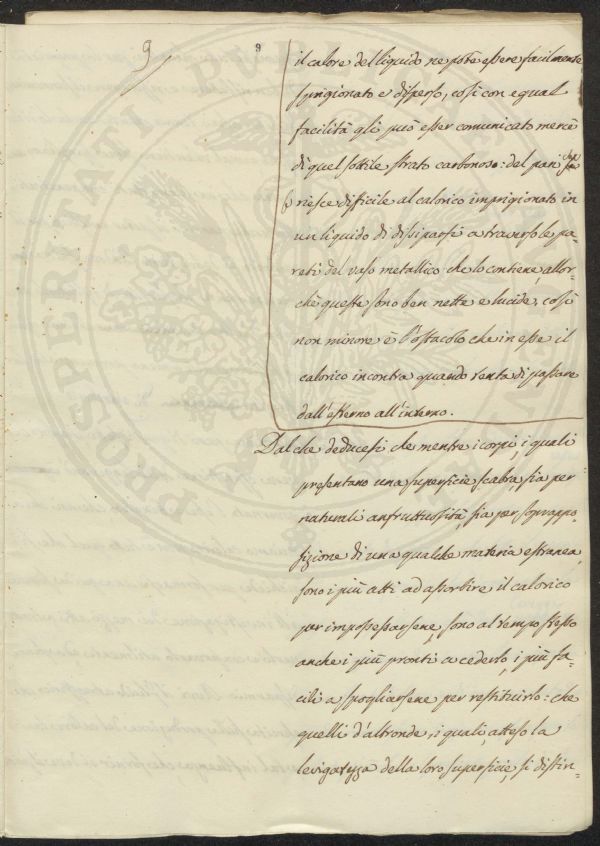 9
9
il calore del liquido ne potè essere facilmente
sprigionato e disperso, così con egual
facilità gli può esser comunicato mercè
di quel sottile strato carbonoso: del pari se
riesce difficile al calorico imprigionato in
un liquido di dissiparsi a traverso le pa-
reti del vaso metallico che lo contiene, allor-
chè queste sono ben nette e lucide, così
non minore è l'ostacolo che in esse il
calorico incontra quando tenta di passare
dall'esterno all'interno.
Dal che deducesi che mentre i corpi, i quali
presentano una superficie scabra, sia per
naturali anfruttussità, sia per soprappo-
sizione di una qualche materia estranea,
sono i più atti ad assorbire il calorico
per impossessarsene, sono al tempo stesso
anche i più pronti a cederlo, i più fa-
cili a spogliarsene per restituirlo: che
quelli d'altronde, i quali, atteso la
levigatezza della loro superficie, si distin-
PROSPERITATI PUBLICAE